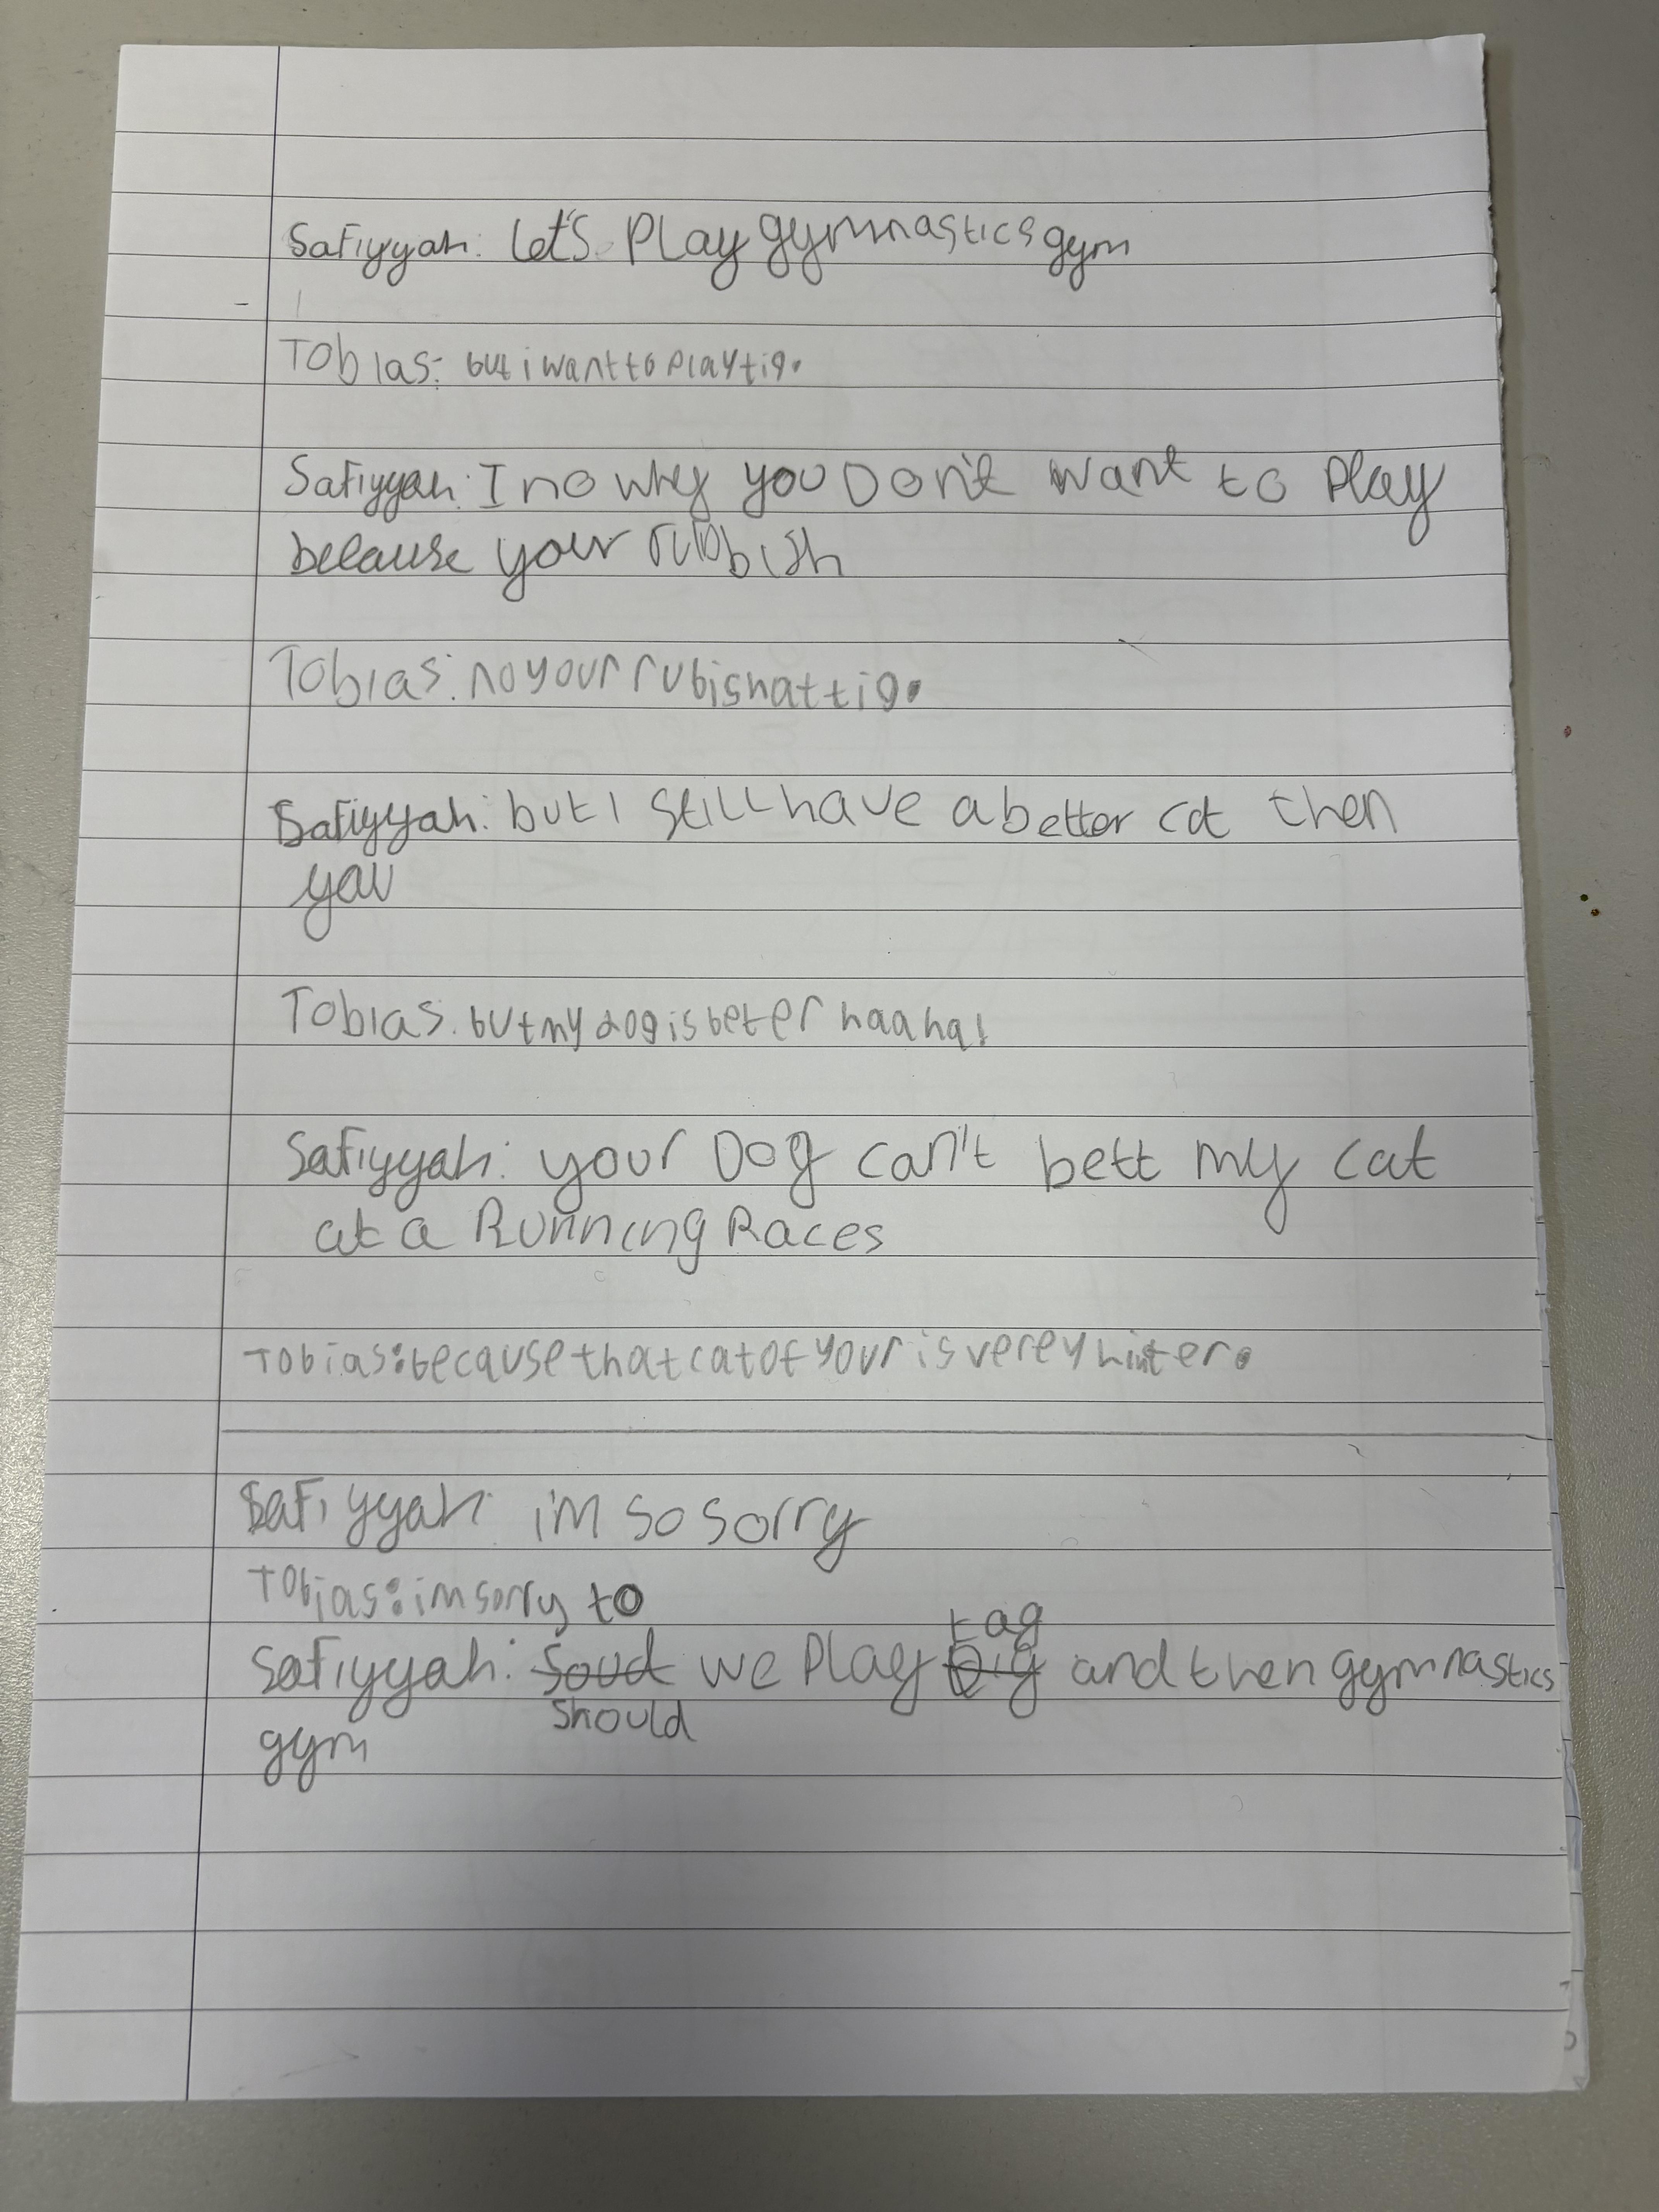 Safiyyah: let's Play gymnastics gym
Tobias: but i want to play tig.
Safiyyah: I no why you Don't want to play
because your rubbish
Tobias: no your rubish at tig.
Safiyyah: but I still have a better cat then
you
Tobias. but my dog is beter haaha!
Safiyyah: your Dog can't bett my cat
at a Running Races
Tobias: because that cat of your is verey
Safiyyah: i'm so sorry
Tobias: im sorry to
tag
Safiyyah: Soud we Play and then gymnastics
Should
gym